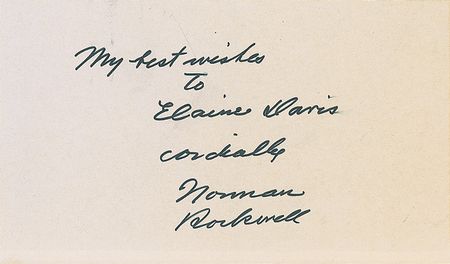 My best wishes
to
Elaine Davis
cordially
Norman
Rockwell